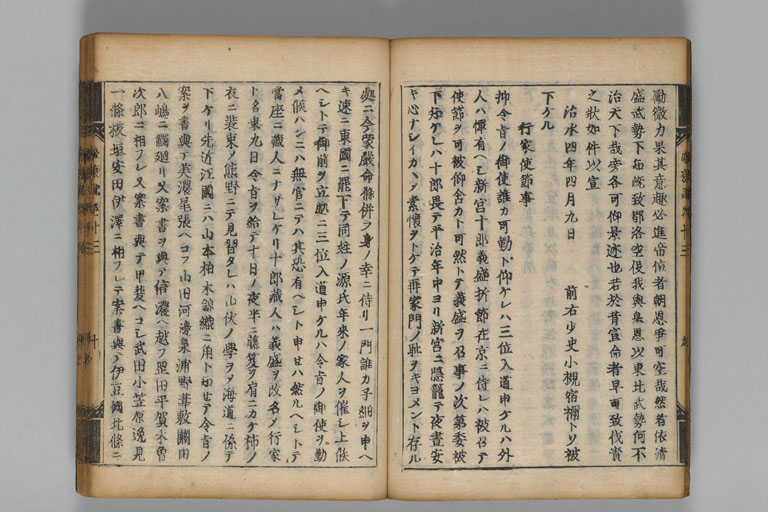 勵微力果其意趣必進帝位者朝恩爭可空哉然若依清
盛威勢下
治天下哉旁各可仰景迹也若於背宣命者早可致伐責
之狀如件以宣
治承四年四月九日 前右少史小槻宿禰トソ被
下ケル
行家使節事
抑令旨ノ御使誰カ可勤ト仰ケレハ三位入道申ケルハ外
人ハ憚有ヘシ新宮十郎義盛折節在京ニ侍レハ被召テ
使節ヲ可被仰含カト可然トテ義盛ヲ召事ノ次第委被
下知ケレハ十郎畏テ平治年中ヨリ新宮ニ隱籠テ夜晝安
キ心ナシイカヽシテ素懷ヲトケテ再家門ノ耻ヲキヨメント存ル
處ニ今蒙嚴命條併ラ身ノ幸ニ侍リ一門誰カ子細ヲ申ヘ
キ速ニ東國ニ罷下テ同姓ノ源氏年來ノ家人ヲ催シ上候
ヘシトテ御前ヲ立處ニ三位入道申ケルハ令旨ノ御使ヲ勤
メ候ハンニハ無官ニテハ其恐有ヘシト申セハ然ルヘシトテ
當座ニ藏人ニナサレケリ十郎藏人ハ義盛ヲ改名シテ行家
ト名乗九日令旨ヲ給テ十日ノ夜半ニ藤笈ヲ肩ニカケ柿ノ
衣ニ裝束ヲ熊野ニテ見習タレハ山伏ノ學ヲシ海道ニ係テ
下ケリ先近江國ニハ山本柏木錦織ニ角ト知セテ令旨ノ
案ヲ書與テ美濃尾張ヘコフ山田河邊泉浦野葦敷關田
八嶋ニ觸廻リ又案書ヲ與テ信濃ヘ越フ照田平賀木曾
次郎ニ相フレ又案書與テ甲斐ヘコシ武田小笠原逸見
一條板垣安田伊澤ニ相フレテ案書與テ伊豆國北條ニ